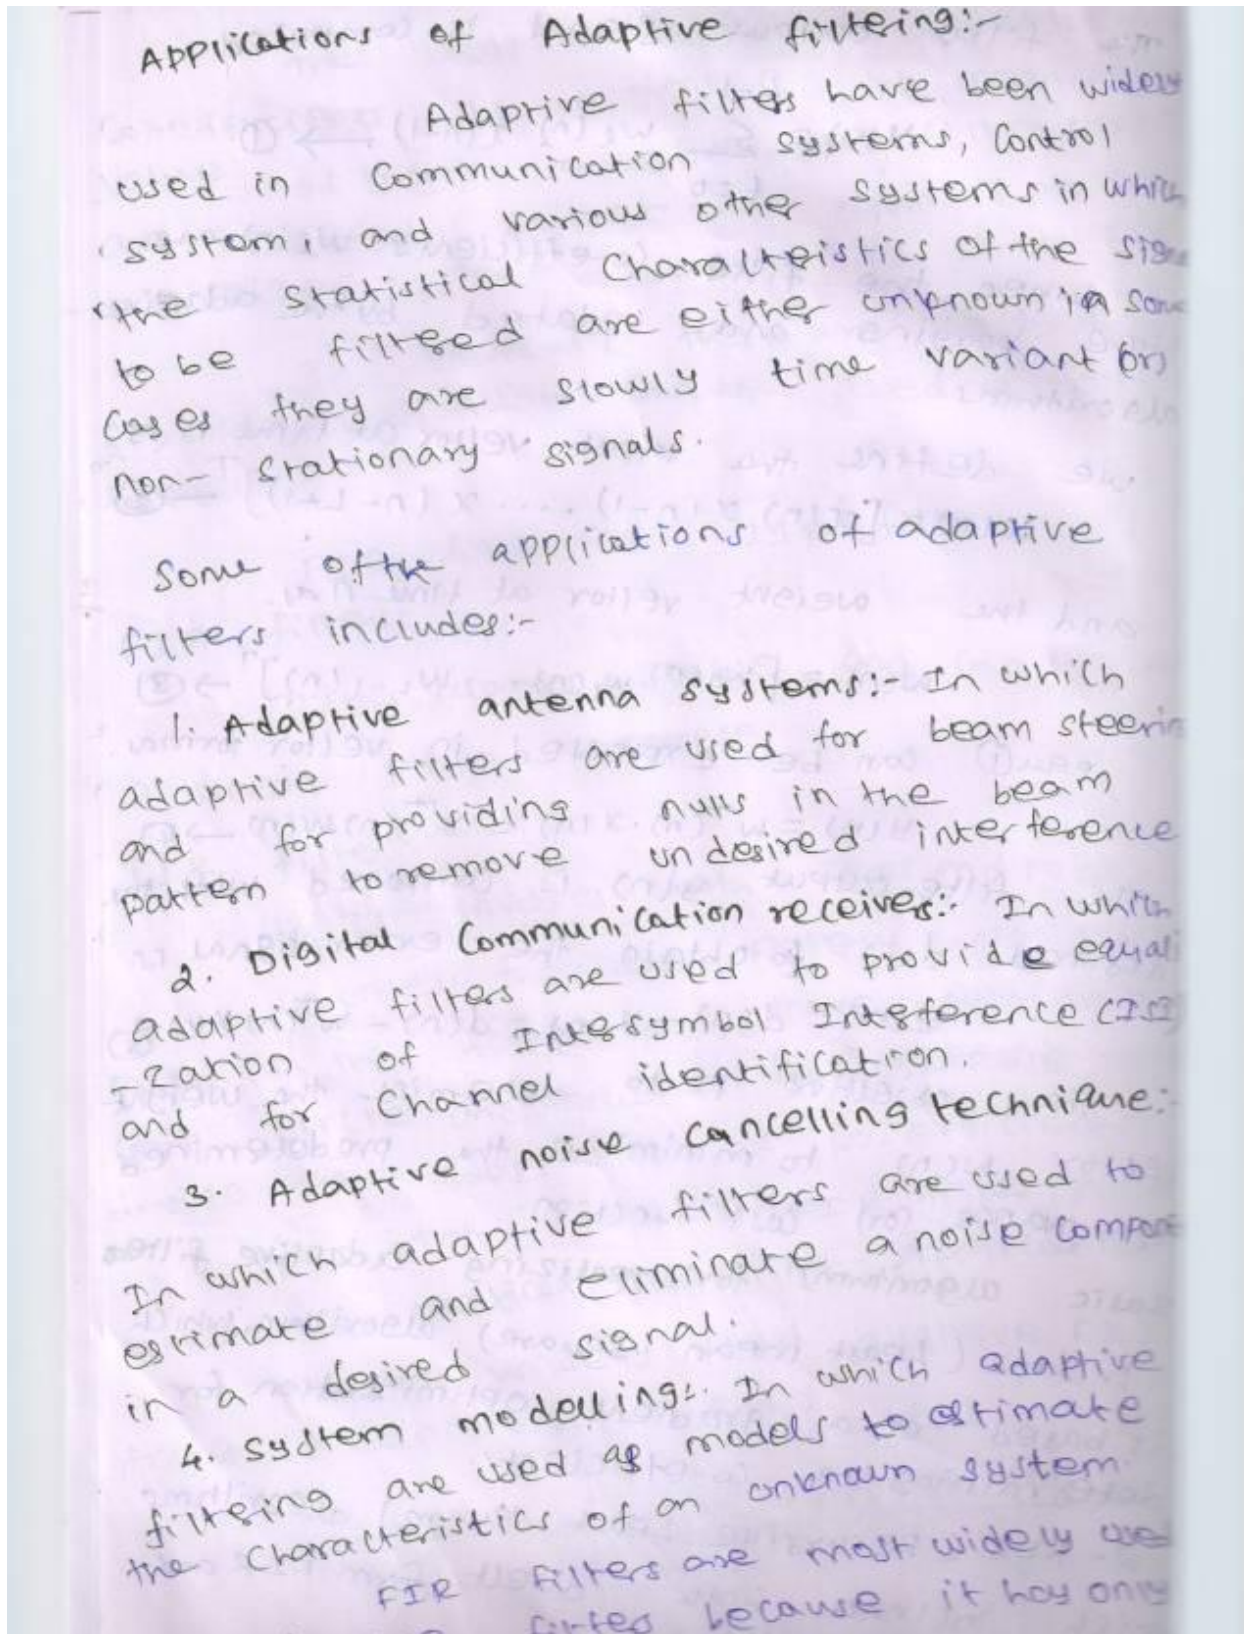 Applications of Adaptive filtering:-
Adaptive filters have been widely
used in Communication systems, Control
system, and various other systems in which
the statistical Characteristics of the sign
to be filtered are either unknown in some
Cases they are slowly time variant (or)
non- stationary signals.
Some of the applications of adaptive
filters includes:-
1. Adaptive antenna systems:- In which
adaptive filters are used for beam steerin
and for providing nulls in the beam
pattern to remove undesired interference
2. Digital Communication receives:- In which
adaptive filters are used to provide equali
-zation of Intersymbol Interference (ISI)
and for Channel identification.
3. Adaptive noise cancelling technique:-
In which adaptive filters are used to
estimate and eliminate a noise compone
in a desired signal.
4. System modelling:- In which adaptive
filtering are used as models to estimate
the Characteristics of an unknown system.
FIR filters are most widely used
filter because it has only